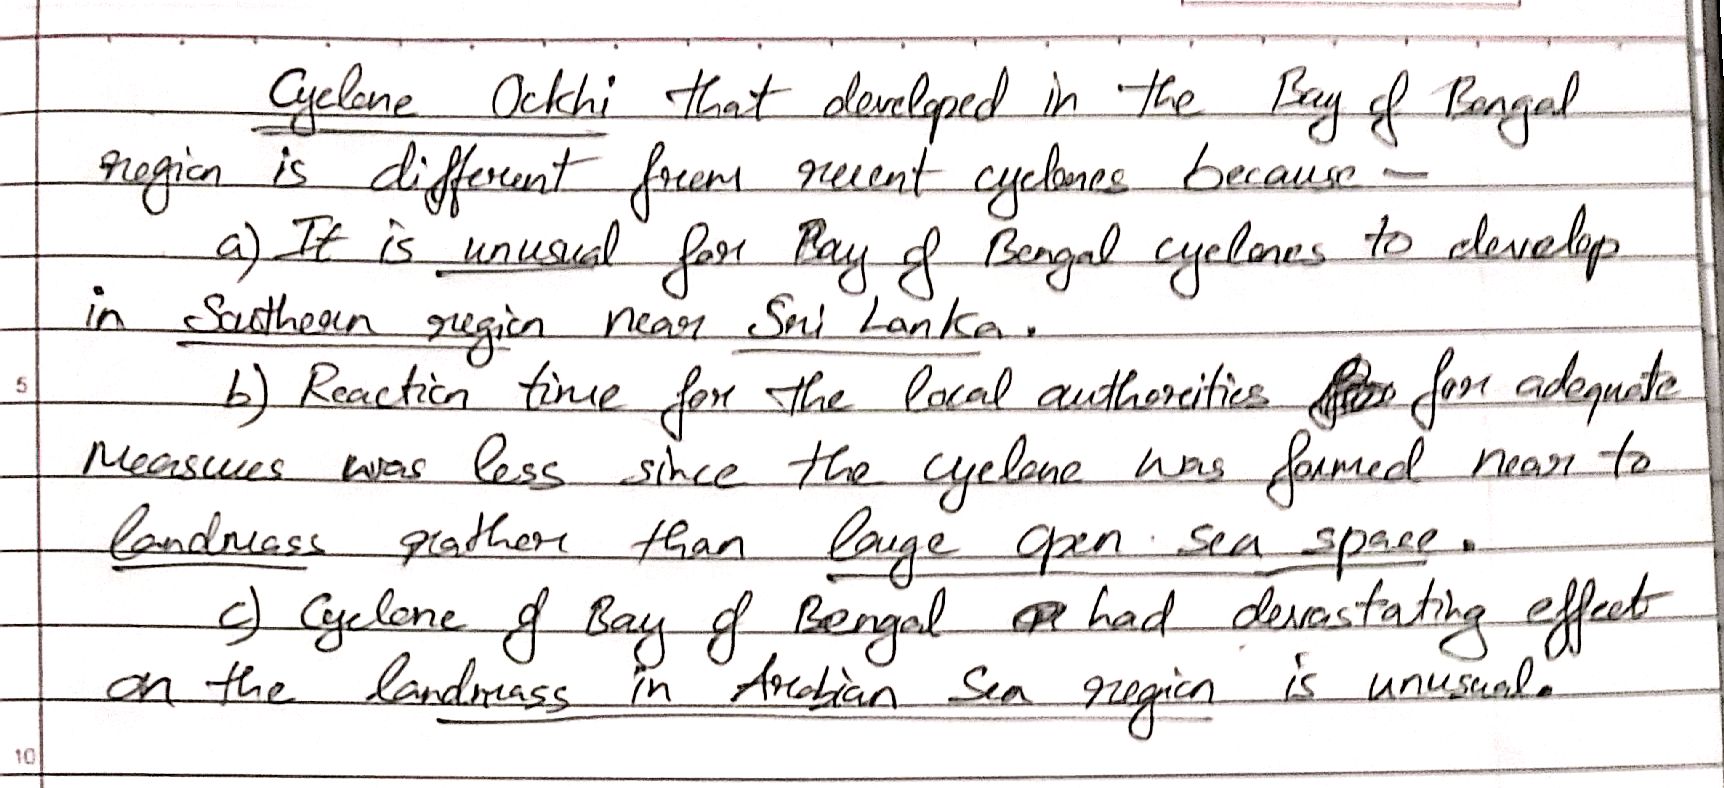 Cyclone Ockhi that developed in the Bay of Bengal
region is different from recent cyclones because -
a) It is unusual for Bay of Bengal cyclones to develop
in Southern region near Sri Lanka.
5
b) Reaction time for the local authorities for adequate
measures was less since the cyclone was formed near to
landmass rather than large open sea space.
c) Cyclone of Bay of Bengal had devastating effect
on the landmass in Arabian Sea region is unusual.
10